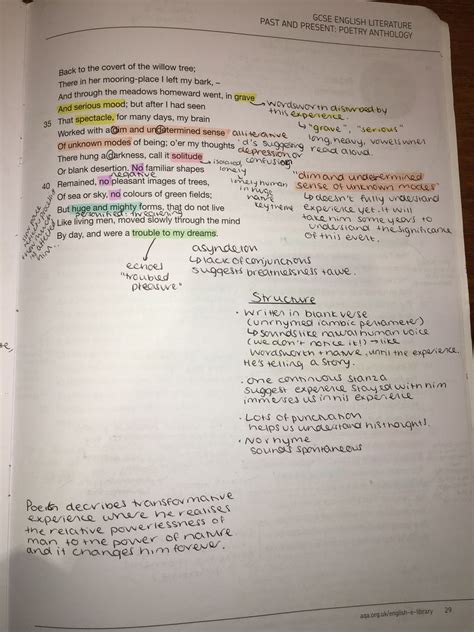 GCSE ENGLISH LITERATURE
PAST AND PRESENT: POETRY ANTHOLOGY
Back to the covert of the willow tree;
There in her mooring-place I left my bark, –
And through the meadows homeward went, in grave
And serious mood; but after I had seen
35 That spectacle, for many days, my brain
Worked with a dim and undetermined sense
Of unknown modes of being; o'er my thoughts
There hung a darkness, call it solitude
Or blank desertion. No familiar shapes
40 Remained, no pleasant images of trees,
Of sea or sky, no colours of green fields;
But huge and mighty forms, that do not live
Like living men, moved slowly through the mind
By day, and were a trouble to my dreams.
Wordsworth disturbed by
this experience.
↳ "grave", "serious"
long, heavy, vowels when
read aloud.
alliterative
'd's suggesting
depression or
confusion
isolated
lonely
negative
lonely human
in huge
nature
key theme
"dim and undetermined
sense of unknown modes"
↳ doesn't fully understand
experience yet. it will
take him some years to
understand the significance
of this event.
personified: threatening
him...
echoes
"troubled
pleasure"
asyndeton
↳ lack of conjunctions
suggests breathlessness + awe.
Structure
• written in blank verse
(unrhymed iambic pentameter)
↳ sounds like natural human voice
(we don't notice it!) → like
Wordsworth + nature, until the experience.
He's telling a story.
• One continuous stanza
suggest experience stayed with him
immerses us in his experience
• Lots of punctuation
helps us understand his thoughts.
• No rhyme
sounds spontaneous
Poem decribes transformative
experience where he realises
the relative powerlessness of
man to the power of nature
and it changes him forever.
aqa.org.uk/english-e-library 29